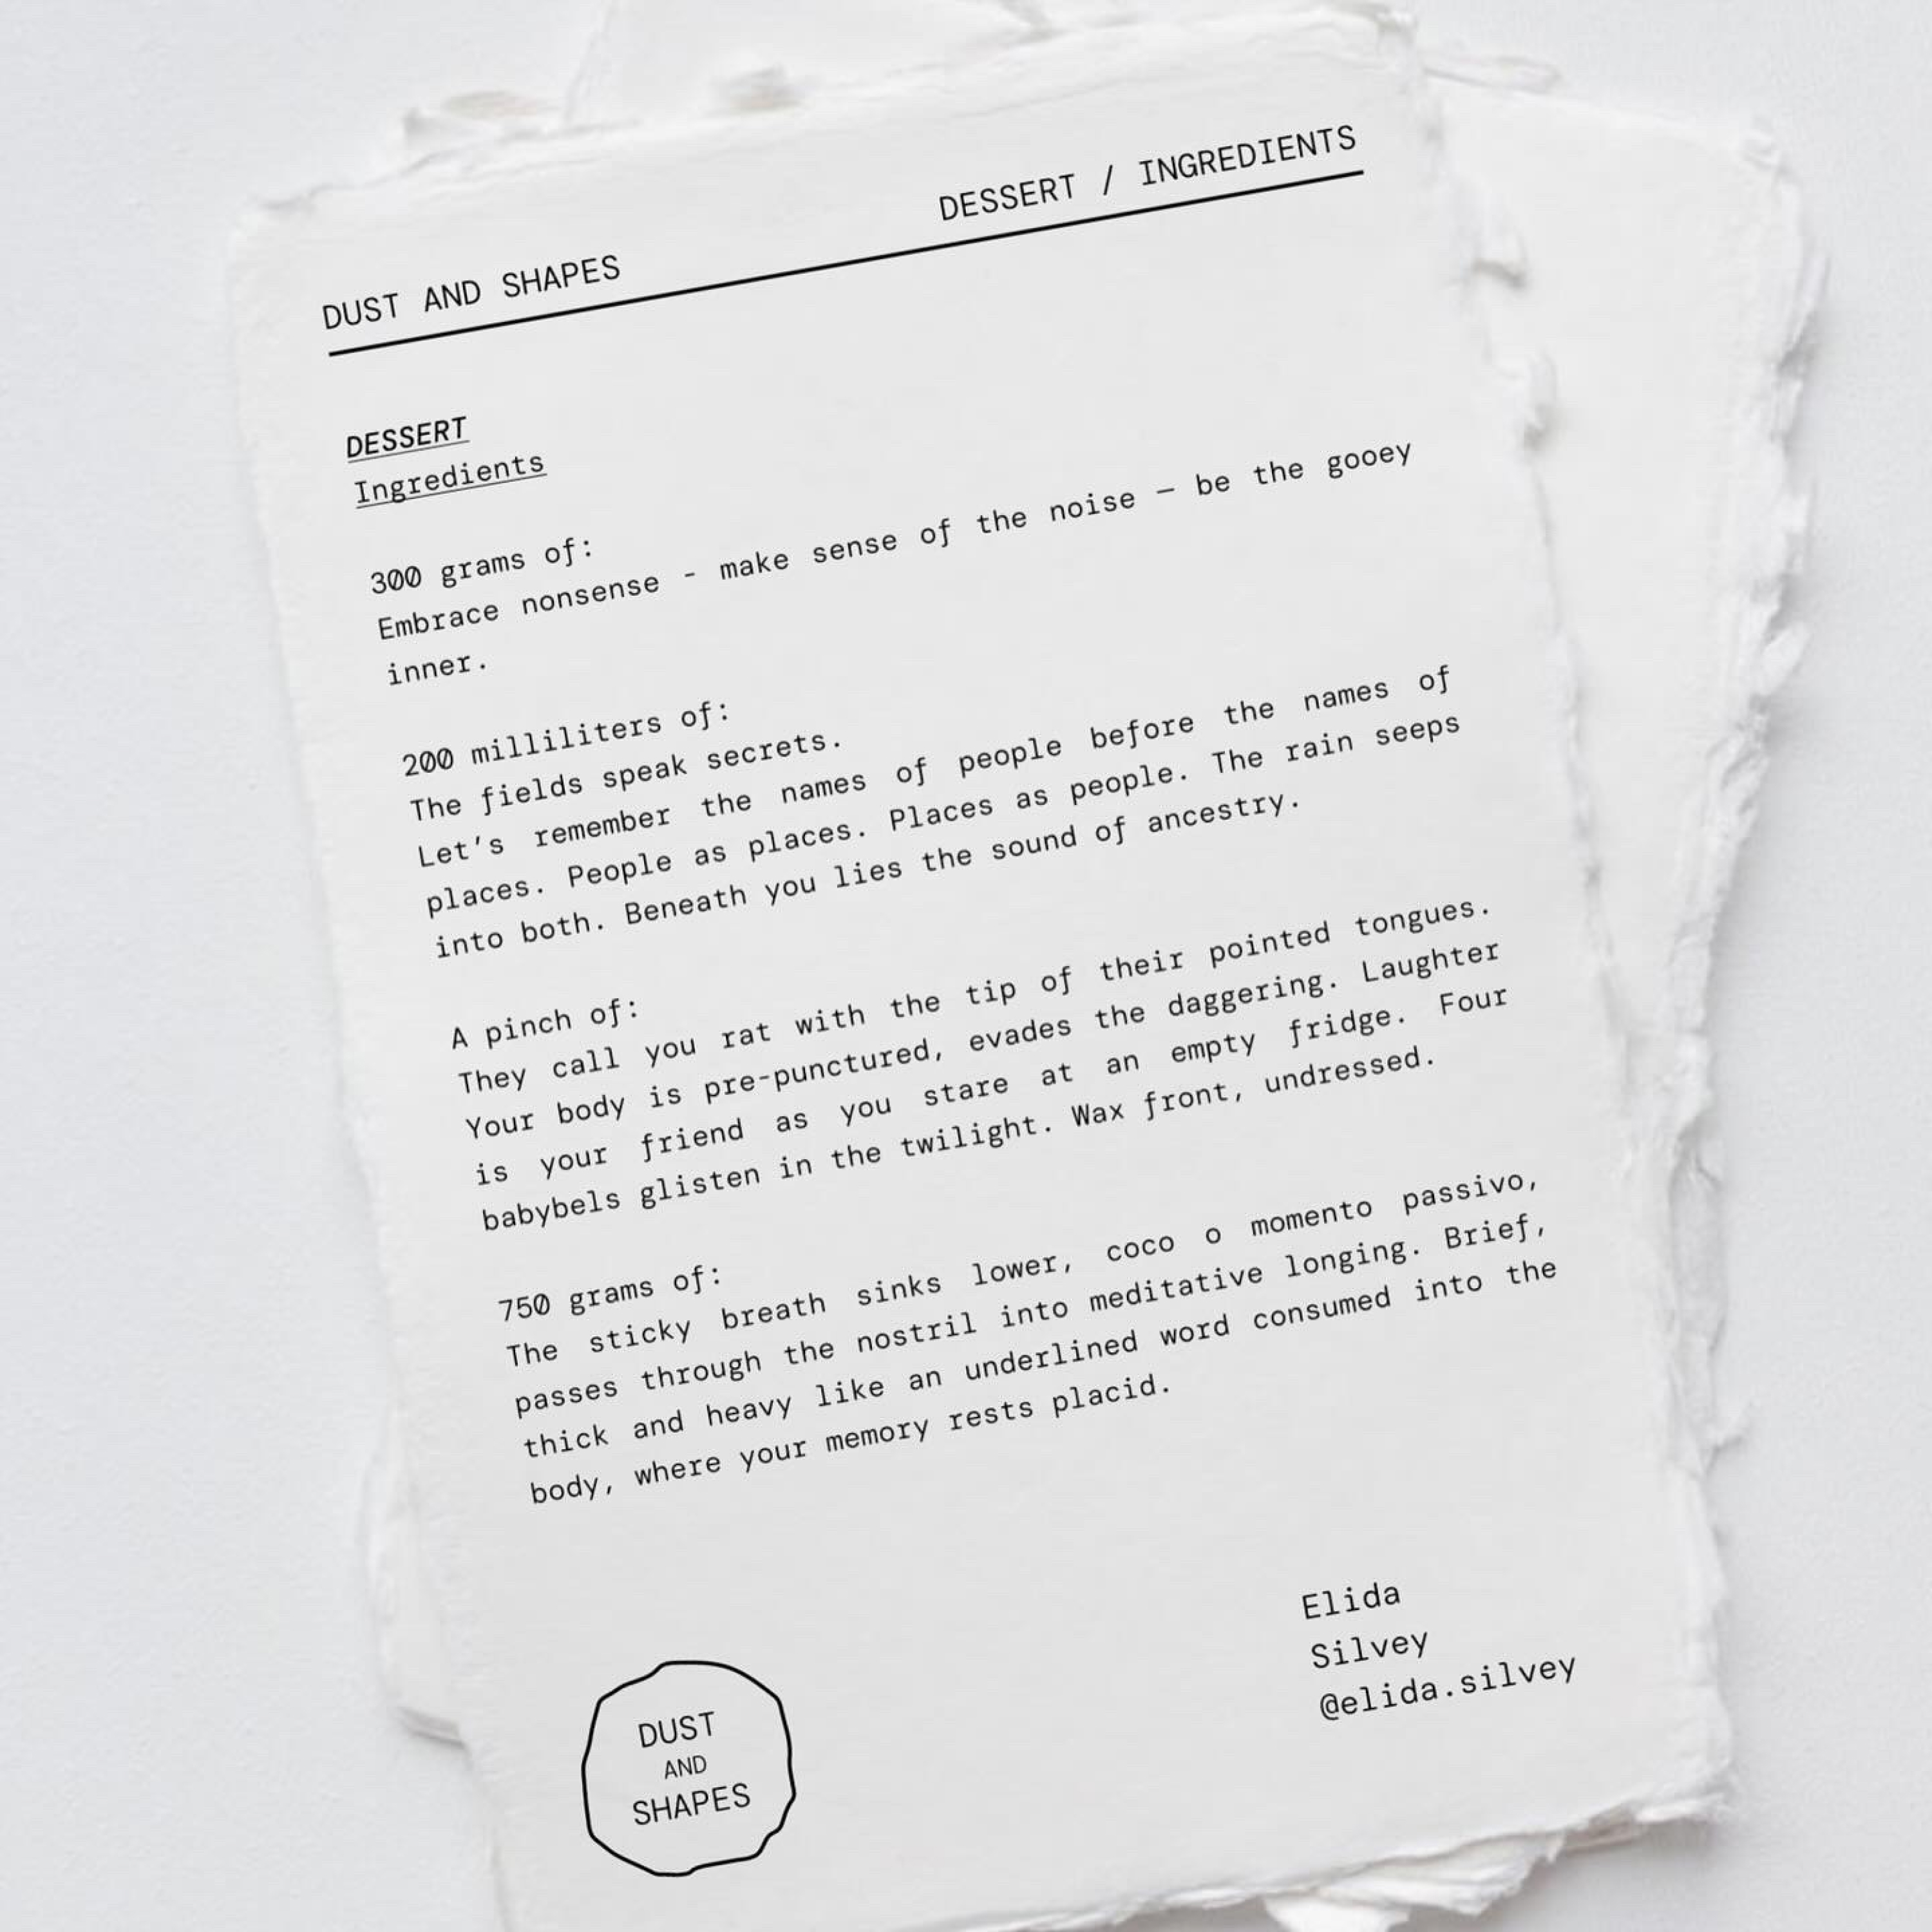 DUST AND SHAPES
DESSERT / INGREDIENTS
DESSERT
Ingredients
300 grams of:
Embrace nonsense - make sense of the noise – be the gooey
inner.
200 milliliters of:
The fields speak secrets.
Let's remember the names of people before the names of
places. People as places. Places as people. The rain seeps
into both. Beneath you lies the sound of ancestry.
A pinch of:
They call you rat with the tip of their pointed tongues.
Your body is pre-punctured, evades the daggering. Laughter
is your friend as you stare at an empty fridge. Four
babybels glisten in the twilight. Wax front, undressed.
750 grams of:
The sticky breath sinks lower, coco o momento passivo,
passes through the nostril into meditative longing. Brief,
thick and heavy like an underlined word consumed into the
body, where your memory rests placid.
Elida
Silvey
@elida.silvey
DUST
AND
SHAPES